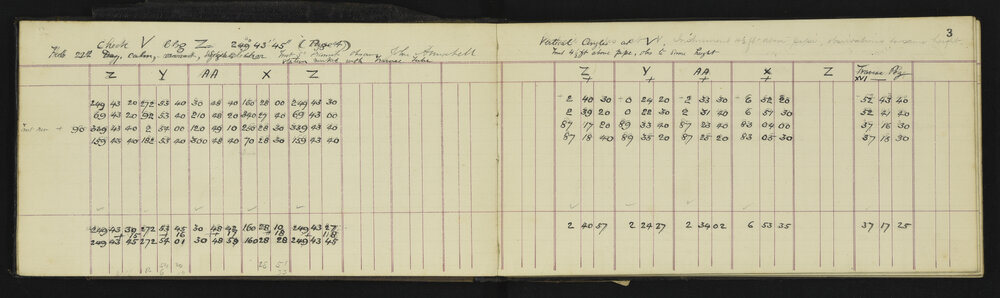 Check V Brg Z = 249° 43' 45" (Page 4)
Feb 27th Day, calm, overcast, observer John
Station marked with Traverse Tube
Z Y AA X Z
249 43 20 272 53 40 30 48 40 160 28 00 249 43 30
69 43 20 92 53 40 210 48 20 340 27 40 69 43 00
+ 90 339 43 40 2 54 00 120 49 10 250 28 30 339 43 40
159 43 40 182 53 40 300 48 40 70 28 30 159 43 40
249 43 30 272 53 45 30 48 42 160 28 10 249 43 27
+ 15 16 + 17 + 18 + 18
249 43 45 272 54 01 30 48 59 160 28 28 249 43 45
3
Vertical Angles at V
Inst 4½ ft above pipe, obs to
Z Y AA X Z Traverse Stn
XVI
2 40 30 0 24 20 2 33 30 6 52 20 52 43 40
2 39 20 0 22 30 2 31 40 6 51 30 52 41 20
87 17 20 89 33 40 87 23 40 83 04 00 37 16 30
87 18 40 89 35 20 87 25 20 83 05 30 37 18 30
2 40 57 2 24 27 2 34 02 6 53 35 37 17 25